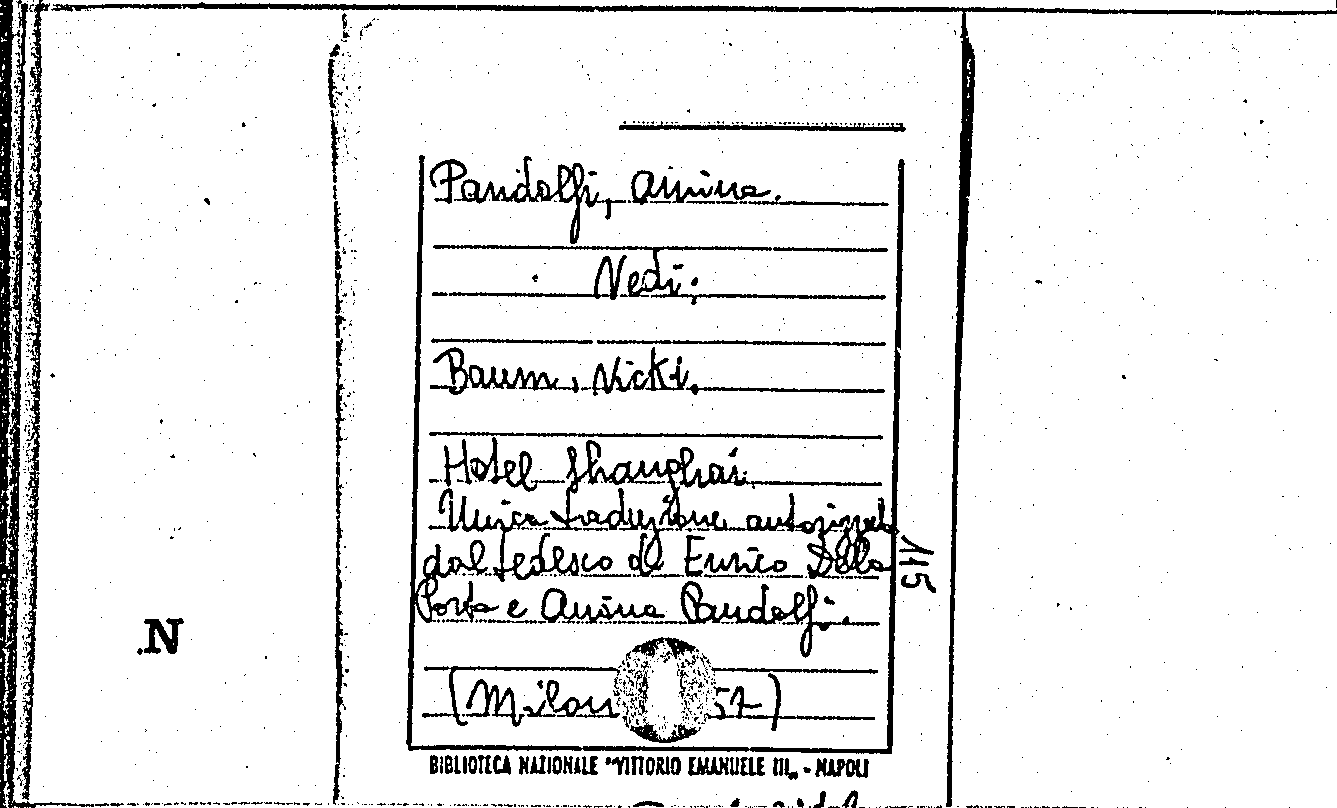 Pandolfi, Amina.
Vedi:
Baum, Vicki.
Hotel Shanghai.
Unica traduzione autorizzata
dal tedesco di Enrico Della
Porta e Amina Pandolfi.
115
.N
(Milan 57)
BIBLIOTECA NAZIONALE "VITTORIO EMANUELE III„ - NAPOLI